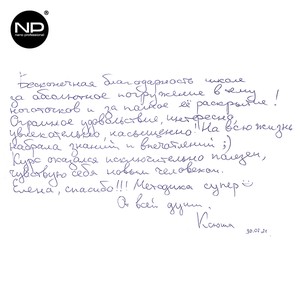 NP
nano professional
Бесконечная благодарность школе
за абсолютное погружение в тему
ноготочков и за полное её раскрытие!
Огромное удовольствие, интересно,
увлекательно, насыщенно! На всю жизнь
набрала знаний и впечатлений ;)
Курс оказался исключительно полезен,
чувствую себя новым человеком.
Елена, спасибо!!! Методика супер☺
От всей души.
Ксюша